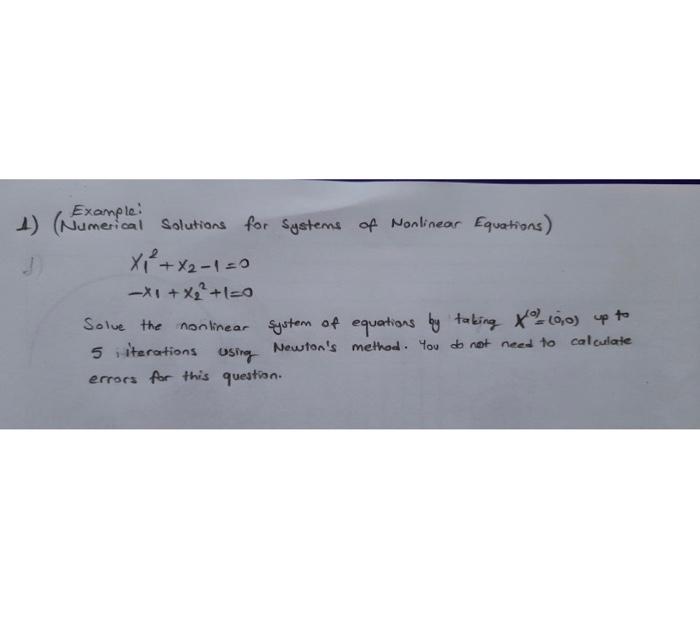 Example:
1) (Numerical Solutions for Systems of Nonlinear Equations)
x₁² + x₂ - 1 = 0
-x₁ + x₂² + 1 = 0
Solve the nonlinear system of equations by taking X⁽⁰⁾ = (0,0) up to
5 iterations using Newton's method. You do not need to calculate
errors for this question.